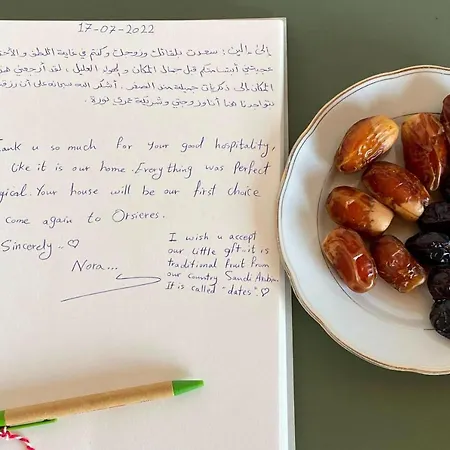 17-07-2022
إلى مالين : سعدت بلقائك وزوجك وكنتم في غاية اللطف و
قبل جمال المكان و العليل ، لقد أرجعني هذا
المكان إلى ذكريات جميلة منذ الصغر . أشكر الله سبحانه على أن
تواجدنا هنا أنا وزوجتي وشريكة عمري نورة .
hank u so much for your good hospitality,
like it is our home. Everything was perfect
gical. Your house will be our first choice
come again to Orsieres.
Sincerely .. ♡
Nora...
I wish u accept
our little gift - it is
traditional fruit from
our country Saudi Arabia.
It is called "dates". ♡